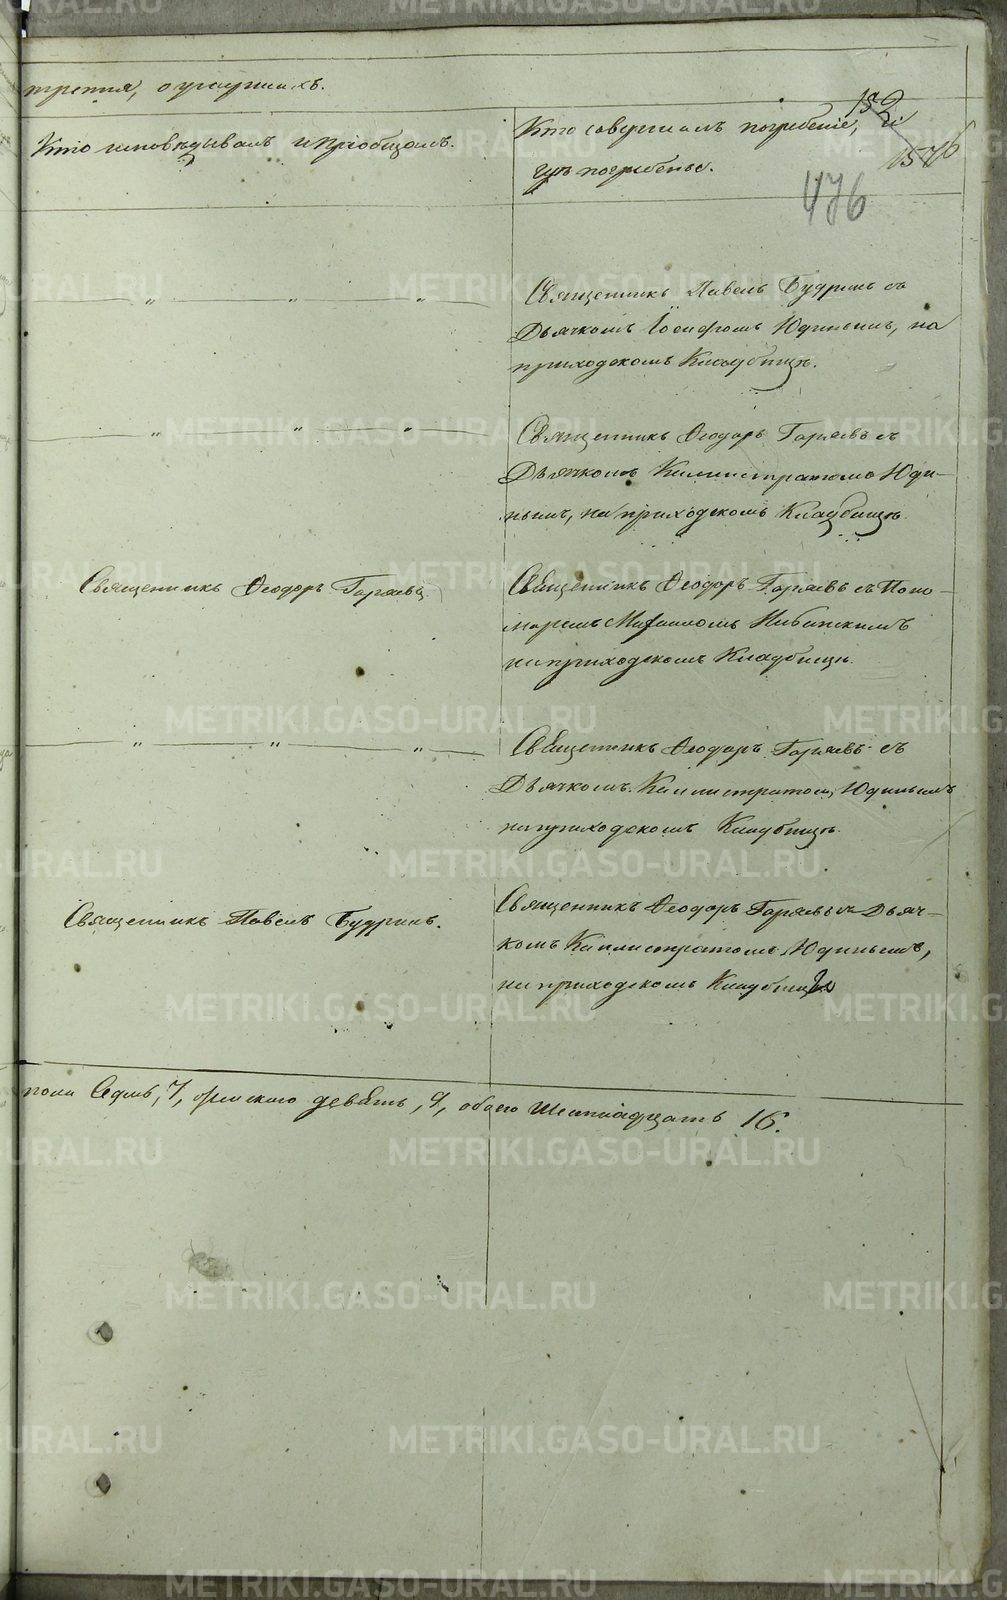 третія, о умершихъ.
152
1576
476
Кто исповѣдывалъ и пріобщалъ.
Кто совершалъ погребеніе, и
гдѣ погребены.
Священникъ Павелъ Будринъ съ
Дьячкомъ Іосифомъ Юдинымъ, на
приходскомъ Кладбищѣ.
Священникъ Ѳеодоръ Горяевъ съ
Дьячкомъ Каллистратомъ Юди-
нымъ, на приходскомъ Кладбищѣ.
Священникъ Ѳеодоръ Горяевъ
Священникъ Ѳеодоръ Горяевъ съ Поно-
маремъ Михаиломъ
на приходскомъ Кладбищѣ.
Священникъ Ѳеодоръ Горяевъ съ
Дьячкомъ Каллистратомъ Юдинымъ
на приходскомъ Кладбищѣ.
Священникъ Павелъ Будринъ.
Священникъ Ѳеодоръ Горяевъ съ Дьяч-
комъ Каллистратомъ Юдинымъ,
на приходскомъ Кладбищѣ
пола Седмь, 7, женскаго девять, 9, обоего Шестнадцать 16.
METRIKI.GASO-URAL.RU